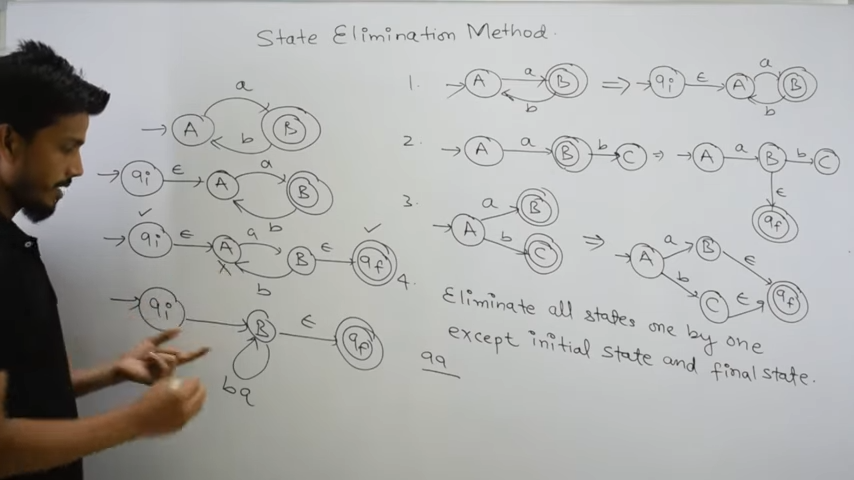 State Elimination Method.
a
A
B
b
qi ε A
a
B
b
qi ε A
a
B ε qf
b
qi
B ε qf
ba
1. A a B b ⇒ qi ε A a B b
2. A a B b C ⇒ A a B b C
ε
qf
3. A a B
b C
⇒ A a B ε
b C ε qf
4. Eliminate all states one by one
except initial state and final state.